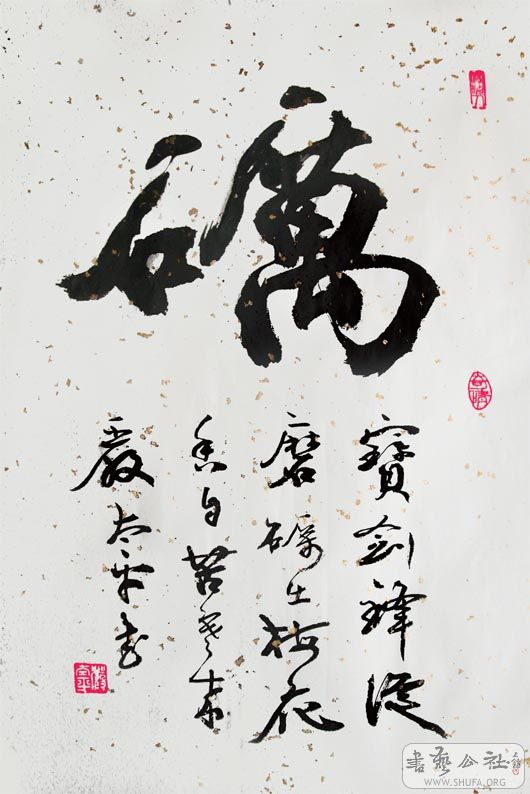 礪
寶劍鋒從
磨礪出梅花
香自苦寒來
嚴太平書
書藝公社
WWW.SHUFA.ORG